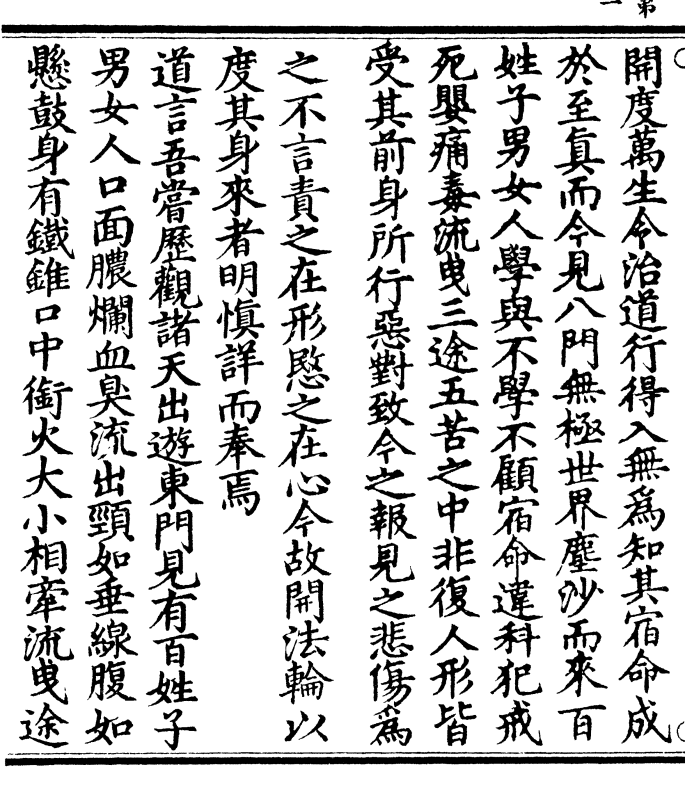 開度萬生令治道行得入無爲知其宿命成
於至眞而今見八門無極世界塵沙而來百
姓子男女人學與不學不顧宿命違科犯戒
死嬰痛毒流曳三途五苦之中非復人形皆
受其前身所行惡對致今之報見之悲傷爲
之不言責之在形愍之在心今故開法輪以
度其身來者明愼詳而奉焉
道言吾嘗歷觀諸天出遊東門見有百姓子
男女人口面膿爛血臭流出頸如垂線腹如
懸鼓身有鐵錐口中銜火大小相牽流曳途